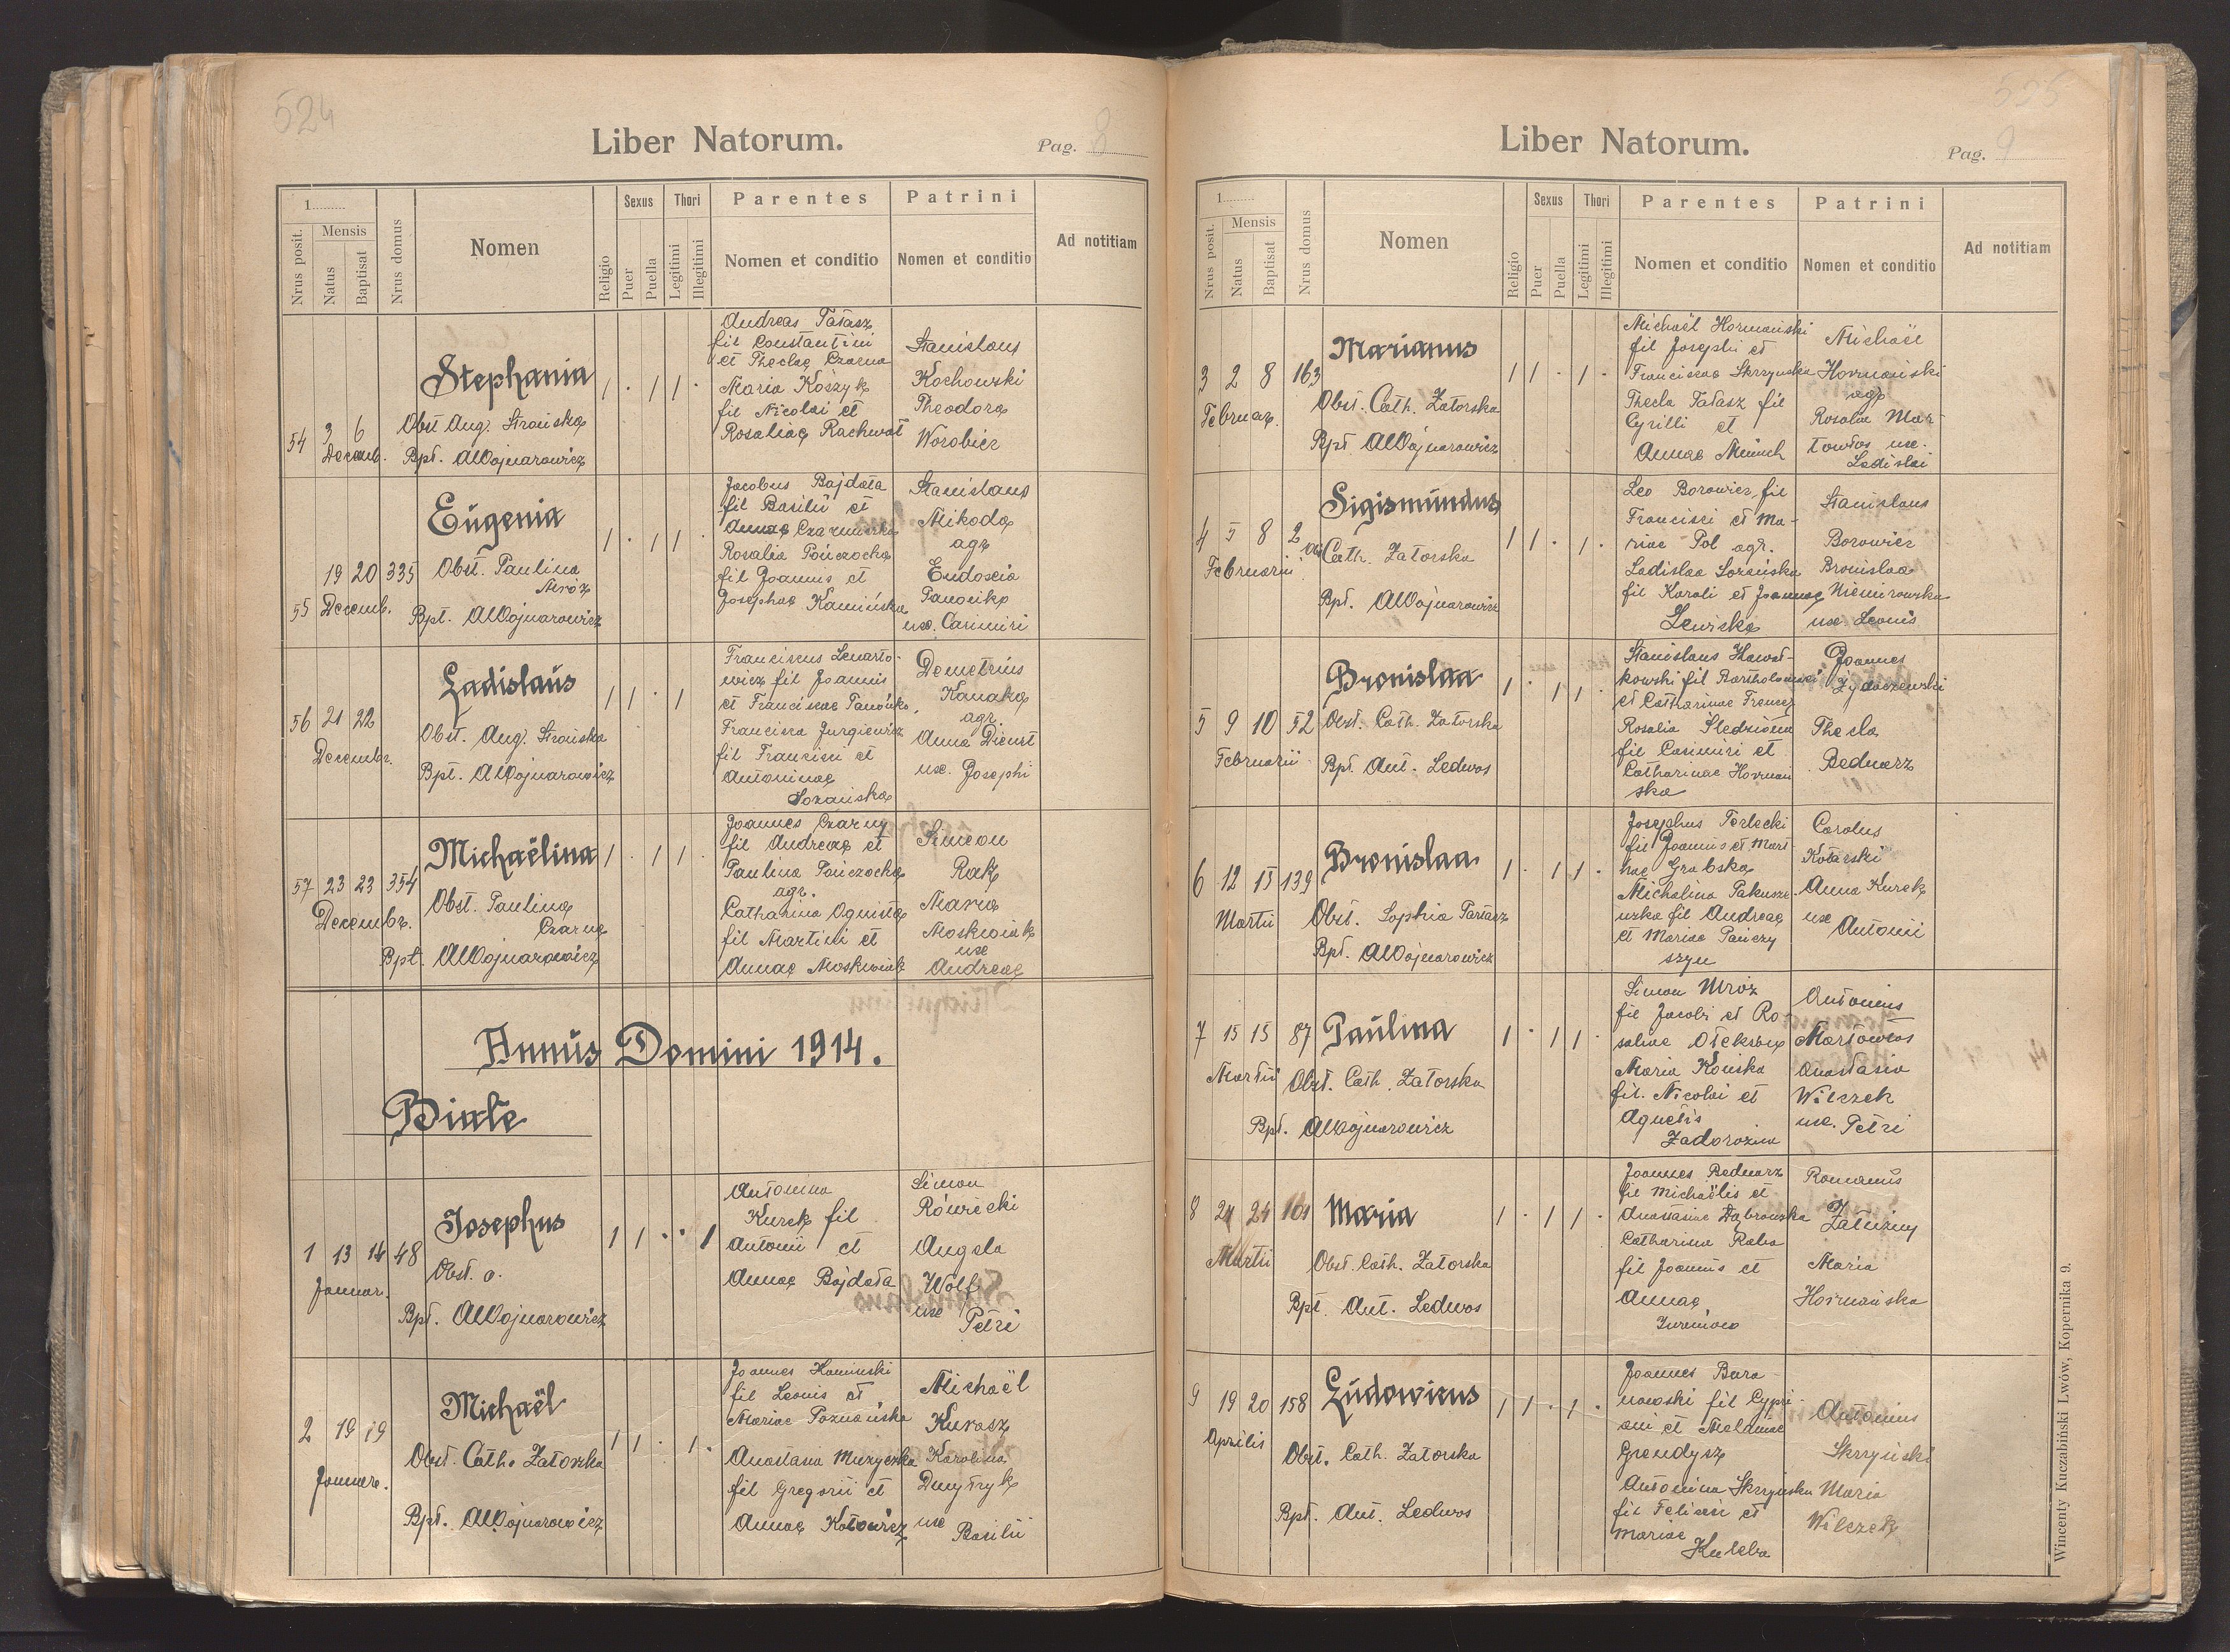 524
Liber Natorum.
Pag. 8
1
Nrus posit.
Mensis
Natus
Baptisat
Nrus domus
Nomen
Religio
Sexus
Puer
Puella
Thori
Legitimi
Illegitimi
Parentes
Nomen et conditio
Patrini
Nomen et conditio
Ad notitiam
54 3 6
Decemb.
Stephania
Obst Aug. Strońska
Bpt. AWojnarowicz
1 . 1 1 .
Andreas Tatasz
fil Constantini
et Theclae Czarna
Maria Koszyk
fil Nicolai et
Rosaliae Rachwał
Stanislaus
Kochowski
Theodora
Worobiec
55 19 20 335
Decemb.
Eugenia
Obst. Paulina
Mróz
Bpt. AWojnarowicz
1 . 1 1 .
Jacobus Bajdała
fil Basilii et
Annae Czarnecka
Rosalia Pończocha
fil Joannis et
Josephae Kamińska
Stanislaus
Mikoda
agr
Eudoxia
Panońko
ux. Casimiri
56 21 22
Decembr.
Ladislaus
Obst. Aug. Strońska
Bpt. AWojnarowicz
1 1 . 1
Franciscus Lenarto-
wicz fil Joannis
et Franciscae Panońko
Francisca Jurgiewicz
fil Francisci et
Antoninae
Sozańska
Demetrius
Kanaka
agr.
Anna Dienst
ux. Josephi
57 23 23 354
Decembr.
Michaëlina
Obst. Paulina
Czarna
Bpt. AWojnarowicz
1 . 1 1 .
Joannes Czarny
fil Andreae et
Paulina Pończocha
agr.
Catharina Ognista
fil Martini et
Annae Moskwiak
Simeon
Rak
Maria
Moskwiak
ux
Andreae
Annus Domini 1914.
Binte
1 13 14 48
Januar.
Josephus
Obst. o.
Bpt. AWojnarowicz
1 1 . . 1
Antonina
Kurek fil
Antonii et
Annae Bajdała
Simon
Rówiecki
Angela
Wolf
ux
Petri
2 19 19
Januar.
Michaël
Obst. Cath. Zatorska
Bpt. AWojnarowicz
1 1 . 1 .
Joannes Kaminski
fil Leonis et
Mariae Poznańska
Anastasia Muzyczka
fil Gregorii et
Annae Kotowicz
Michaël
Kurasz
Karolina
Dmytryk
ux
Basilii
525
Liber Natorum.
Pag. 9
1
Nrus posit.
Mensis
Natus
Baptisat
Nrus domus
Nomen
Religio
Sexus
Puer
Puella
Thori
Legitimi
Illegitimi
Parentes
Nomen et conditio
Patrini
Nomen et conditio
Ad notitiam
3 2 8 163
Februar.
Marianus
Obst. Cath. Zatorska
Bpt AWojnarowicz
1 1 . 1 .
Michaël Hormański
fil Josephi et
Franciscae Skrzyńska
Thecla Tatasz fil
Cyrilli et
Annae Münich
Michaël
Hormański
agr
Rosalia Mar-
towłos ux.
Ladislai
4 5 8 2
Februarii
Sigismundus
Cath. Zatorska
Bpt. AWojnarowicz
1 1 . 1 .
Leo Borowicz, fil
Francisci et Ma-
riae Pol agr.
Ladislaa Sozańska
fil Karoli et Joannae
Lewicka
Stanislaus
Borowicz
Bronislaa
Niemirowska
ux Leonis
5 9 10 52
Februarii
Bronislaa
Obst. Cath. Zatorska
Bpt. Ant. Ledwos
1 . 1 1 .
Stanislaus Hawał-
kowski fil Bartholomaei
et Catharinae Frencz
Rosalia Śledziona
fil Casimiri et
Catharinae Horman-
ska
Joannes
Żydaczewski
Thecla
Bednarz
6 12 15 139
Martii
Bronislaa
Obst. Sophia Tatasz
Bpt. AWojnarowicz
1 . 1 1 .
Josephus Terlecki
fil Joannis et Mari-
nae Grabska
Michalina Pakuszew-
uzka fil Andreae
et Mariae Pańczy
szyn
Carolus
Kotarski
Anna Kurek
ux
Antonii
7 15 15 87
Martii
Paulina
Obst. Cath. Zatorska
Bpt. AWojnarowicz
1 . 1 1 .
Simon Mróz
fil Jacobi et Ro-
saliae
Maria Końska
fil. Nicolai et
Agnetis
Zadorożna
Antonius
Martowłos
Anastasia
Wilczek
ux. Petri
8 24 24 101
Martii
Maria
Obst. Cath. Zatorska
Bpt. Ant. Ledwos
1 . 1 1 .
Joannes Bednarz
fil Michaëlis et
Anastasiae Dąbrowska
Catharina Raba
fil Joannis et
Annae
Romanus
Załużny
Maria
Hormańska
9 19 20 158
Aprilis
Ludovicus
Obst. Cath. Zatorska
Bpt. Ant. Ledwos
1 1 . 1 .
Joannes Bara-
nowski fil Cypri-
ani et Melaniae
Grendysz
Antonina Skrzyńska
fil Felicis et
Mariae
Kuleba
Antonius
Skrzyński
Maria
Wilczek
Wincenty Kuczabiński Lwów, Kopernika 9.